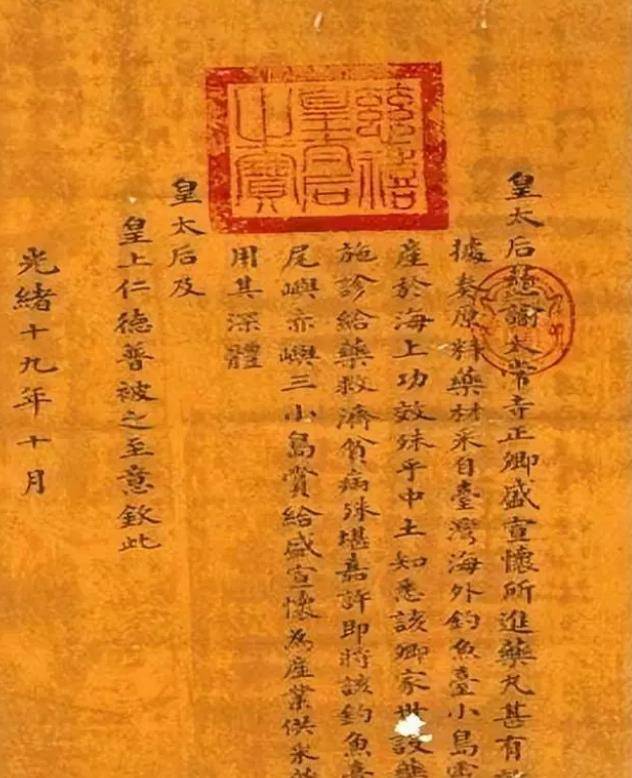 慈禧
皇
之寶
皇太后慈諭太常寺正卿盛宣懷所進藥丸甚有
據奏原料藥材采自臺灣海外釣魚臺小島靈
產於海上功效殊乎中土知悉該卿家世設藥
施診給藥救濟貧病殊堪嘉許即將該釣魚臺
尾嶼赤嶼三小島賞給盛宣懷為產業供采藥
用其深體
皇太后及
皇上仁德普被之至意欽此
光緒十九年十月